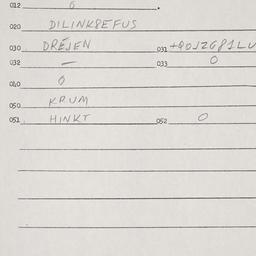 012 0
020 DILINKREFUS
030 DRÉJEN 031 +QOJ2G81LU
032 — 033 0
040 0
050 KRUM
051 HINKT 052 0